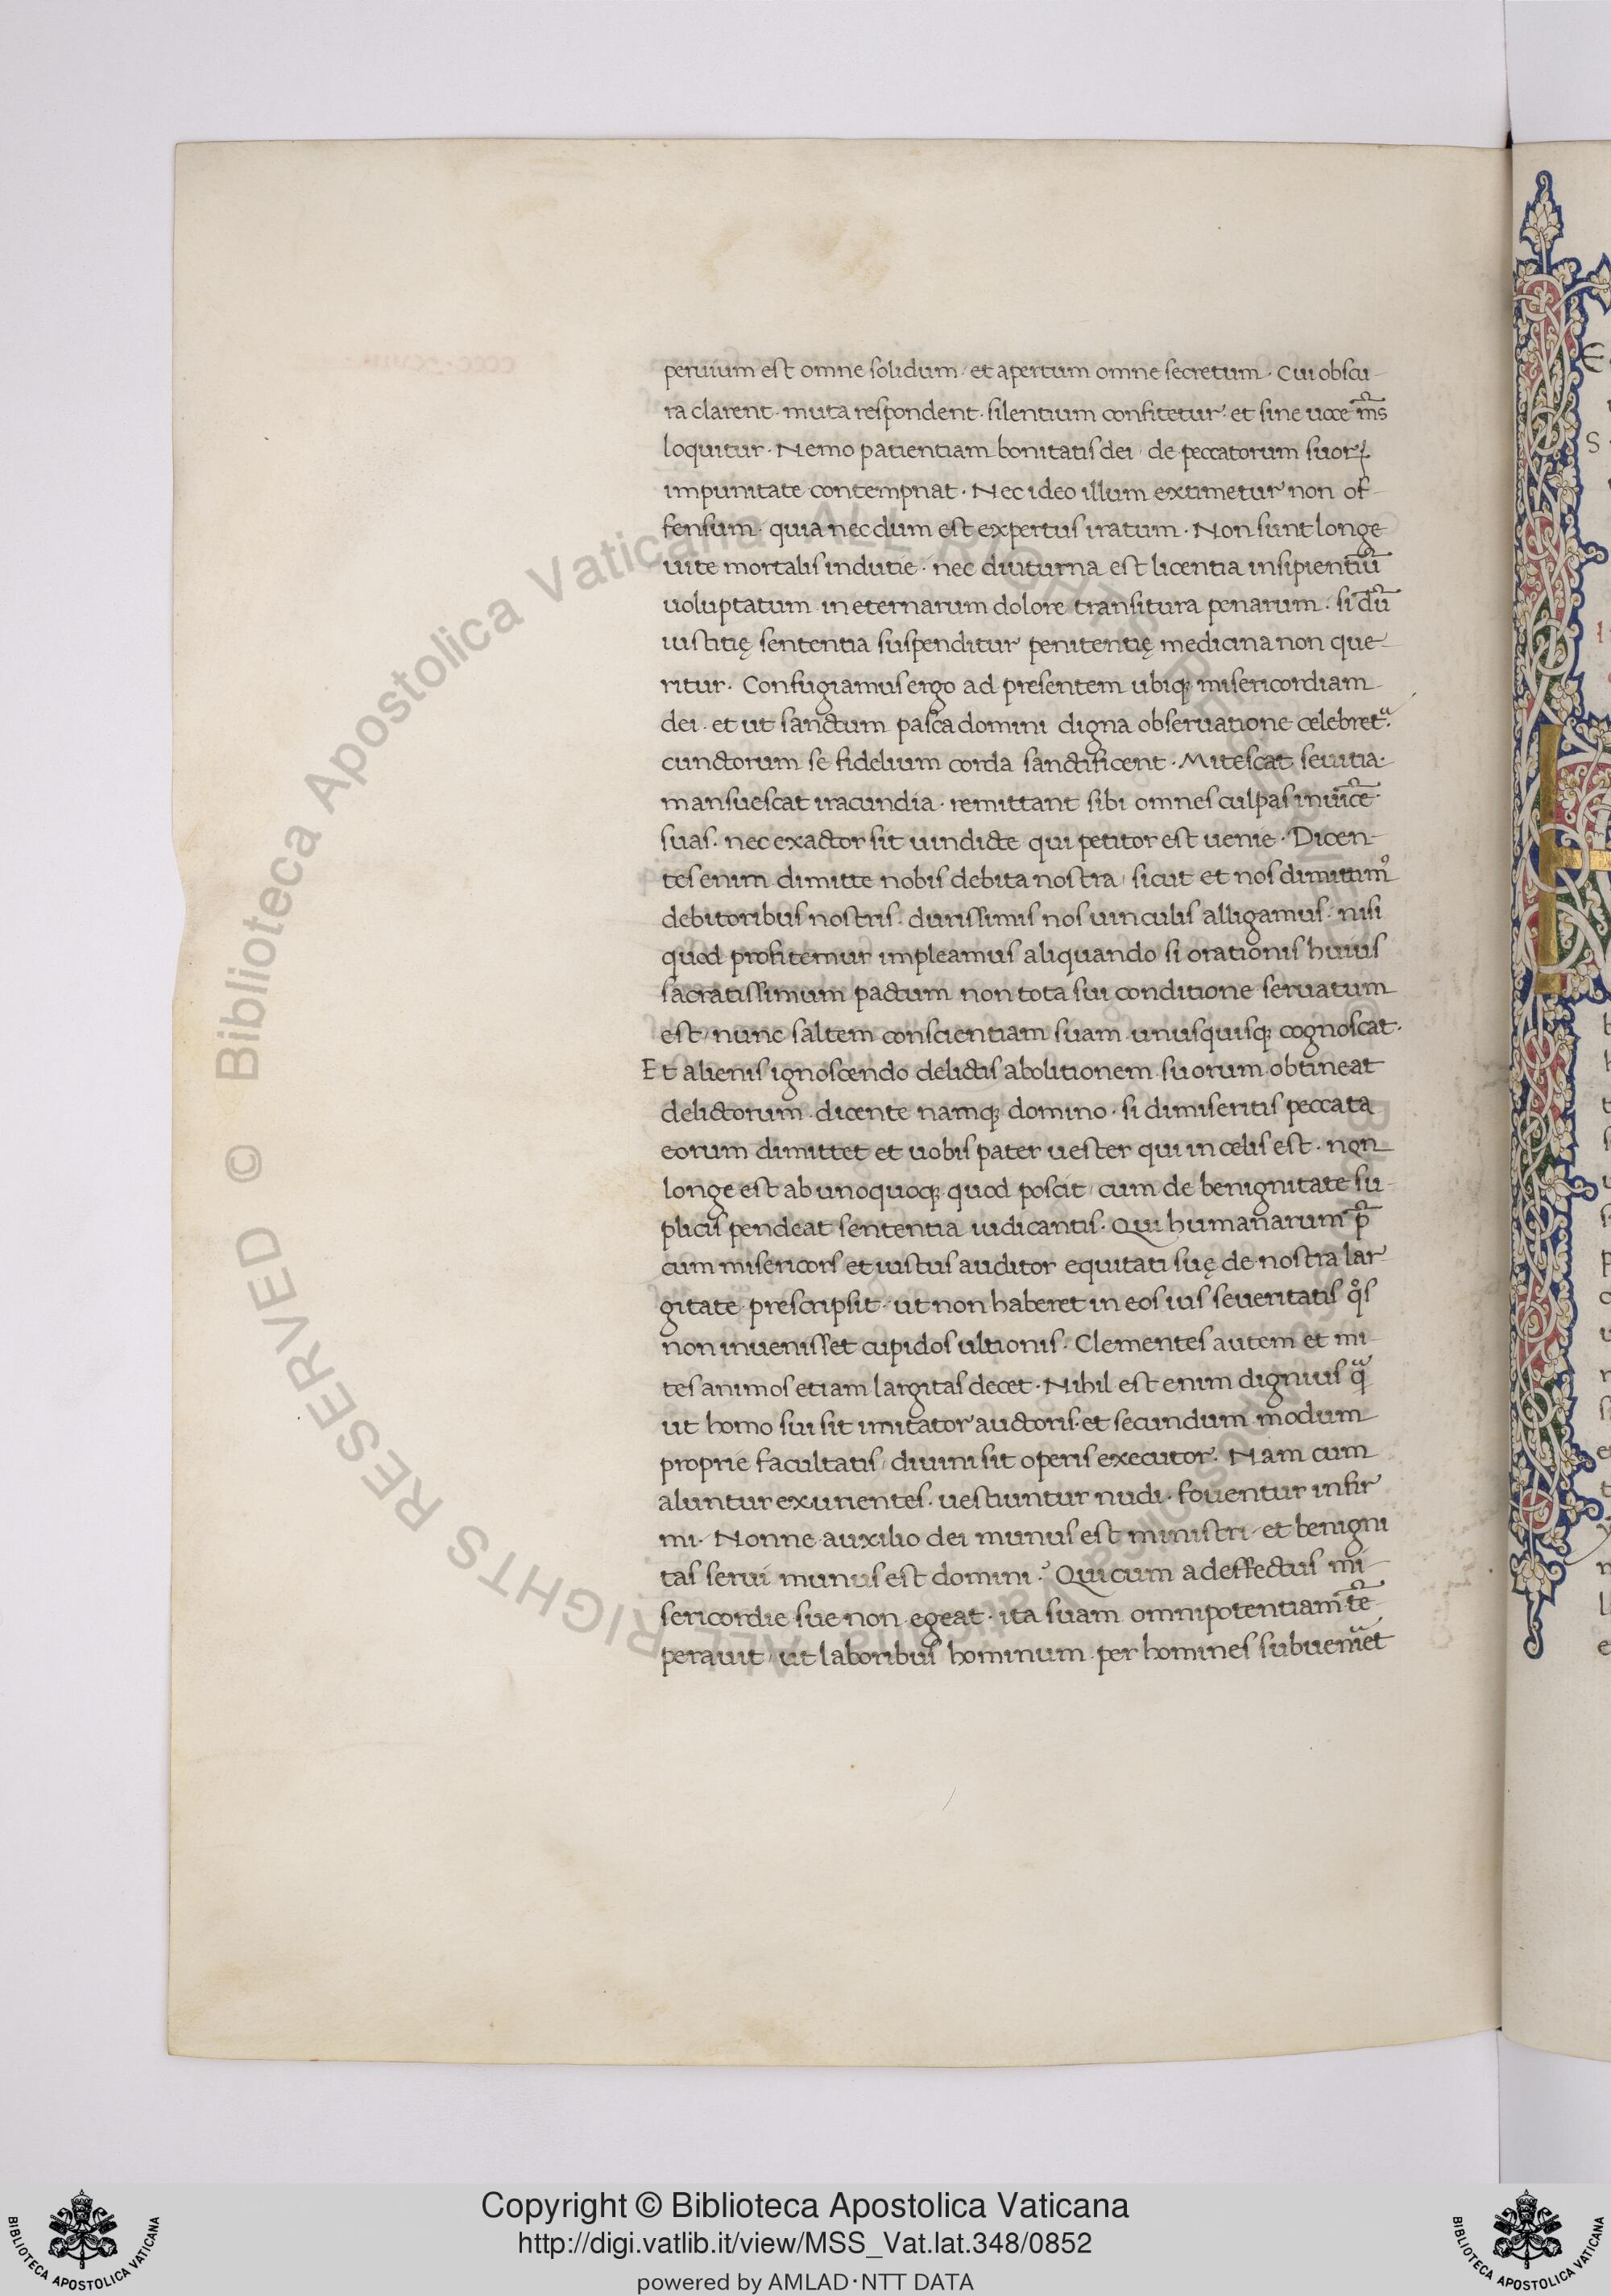 peruium est omne solidum · et apertum omne secretum · Cui obscu-
ra clarent · muta respondent · silentium confitetur · et sine uoce m̃s
loquitur · Nemo patientiam bonitatis dei / de peccatorum suoꝝ
impunitate contempnat · Nec ideo illum extimetur non of-
fensum · quia nec dum est expertus iratum · Non sunt longe
uite mortalis indutie · nec diuturna est licentia insipientiũ
uoluptatum in eternarum dolore transitura penarum · si dũ
iustitię sententia suspenditur penitentię medicina non que-
ritur · Confugiamus ergo ad presentem ubiqꝫ misericordiam
dei · et ut sanctum pasca domini digna obseruatione celebretᵃ·
cunctorum se fidelium corda sanctificent · Mitescat seuitia ·
mansuescat iracundia · remittant sibi omnes culpas inuicẽ ·
suas · nec exactor sit uindicte qui petitor est uenie · Dicen-
tes enim dimitte nobis debita nostra / sicut et nos dimittimꝰ
debitoribus nostris · durissimis nos uinculis alligamus · nisi
quod profitemur impleamus aliquando si orationis huius
sacratissimum pactum non tota sui conditione seruatum
est / nunc saltem conscientiam suam unusquisqꝫ cognoscat ·
Et alienis ignoscendo delictis abolitionem suorum obtineat
delictorum · dicente namqꝫ domino · si dimiseritis peccata
eorum dimittet et uobis pater uester qui in celis est · non
longe est ab unoquoqꝫ quod poscit / cum de benignitate su-
plicis pendeat sententia iudicantis · Qui humanarum p̃
cum misericors et iustus auditor equitati suę de nostra lar
gitate prescripsit · ut non haberet in eos ius seueritatis qͦs
non inuenisset cupidos ultionis · Clementes autem et mi
tes animos etiam largitas decet · Nihil est enim dignius qᷓ
ut homo sui sit imitator auctoris · et secundum modum
proprie facultatis / diuini sit operis executor · Nam cum
aluntur exurientes · uestiuntur nudi · fouentur infir
mi · Nonne auxilio dei munus est ministri / et benigni
tas serui munus est domini ? Qui cum ad effectus mi-
sericordie sue non egeat · ita suam omnipotentiam tẽ
perauit / ut laboribus hominum per homines subueniᵃet
© Biblioteca Apostolica Vaticana ALL RIGHTS RESERVED
Copyright © Biblioteca Apostolica Vaticana
http://digi.vatlib.it/view/MSS_Vat.lat.348/0852
powered by AMLAD·NTT DATA
BIBLIOTECA APOSTOLICA VATICANA
BIBLIOTECA APOSTOLICA VATICANA